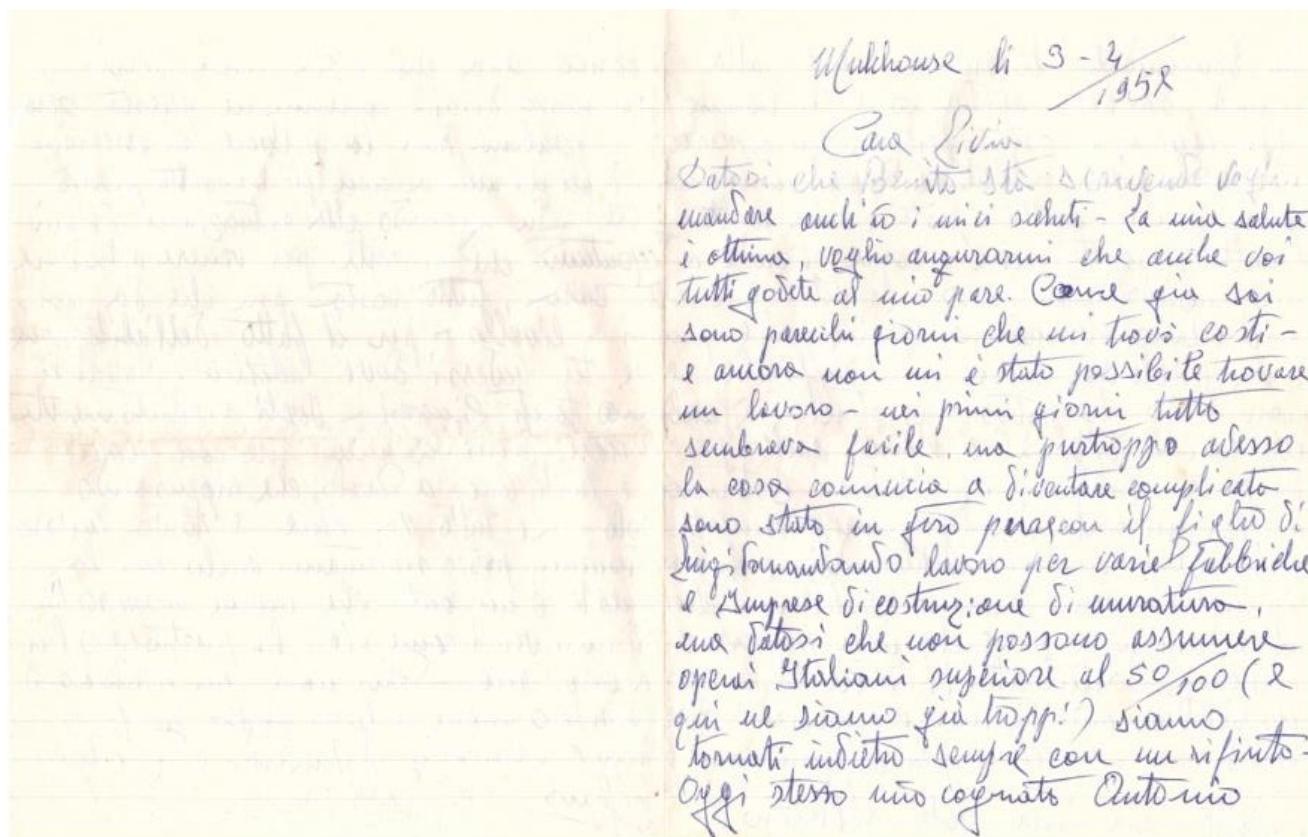 Mulhouse li 3-4/1952
Cara Livia
Datosi che Benito sta scrivendo voglio
mandare anch'io i miei saluti - La mia salute
è ottima, voglio augurarmi che anche voi
tutti godete al mio pare. Come già sai
sono parecchi giorni che mi trovo costi -
e ancora non mi è stato possibile trovare
un lavoro - nei primi giorni tutto
sembrava facile, ma purtroppo adesso
la cosa comincia a diventare complicata
sono stato in giro con il figlio di
domandando lavoro per varie fabbriche
e Imprese di costruzione di muratura,
ma datosi che non possono assumere
operai Italiani superiore al 50/100 (e
qui ne siamo già troppi!) siamo
tornati indietro sempre con un rifiuto -
Oggi stesso mio cognato Antonio